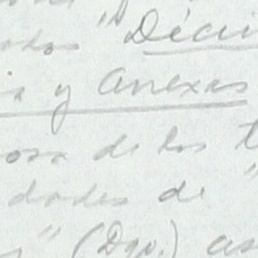 "Déci
a y anexas
osa de los t
dades de "
" (Dgo.) as